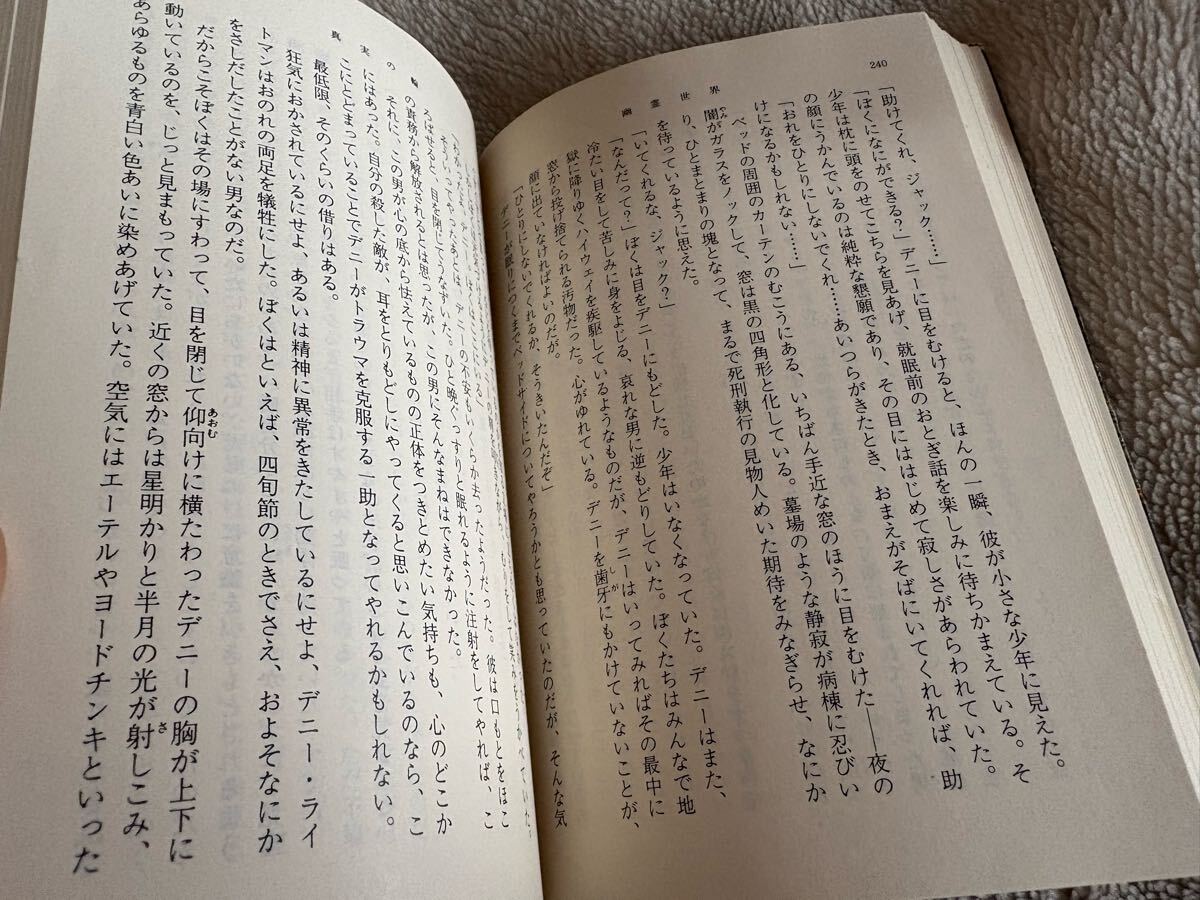 240
幽霊世界
「助けてくれ、ジャック……」
「ぼくになにができる？」デニーに目をむけると、ほんの一瞬、彼が小さな少年に見えた。
少年は枕に頭をのせてこちらを見あげ、就眠前のおとぎ話を楽しみに待ちかまえている。そ
の顔にうかんでいるのは純粋な懇願であり、その目にははじめて寂しさがあらわれていた。
「おれをひとりにしないでくれ……あいつらがきたとき、おまえがそばにいてくれれば、助
けになるかもしれない……」
ベッドの周囲のカーテンのむこうにある、いちばん手近な窓のほうに目をむけた――夜の
闇がガラスをノックして、窓は黒の四角形と化している。墓場のような静寂が病棟に忍びい
り、ひとまとまりの塊となって、まるで死刑執行の見物人めいた期待をみなぎらせ、なにか
を待っているように思えた。
「いてくれるな、ジャック？」
「なんだって？」ぼくは目をデニーにもどした。少年はいなくなっていた。デニーはまた、
冷たい目をして苦しみに身をよじる、哀れな男に逆もどりしていた。ぼくたちはみんなで地
獄に降りゆくハイウェイを疾駆しているようなものだが、デニーはいってみればその最中に
窓から投げ捨てられる汚物だった。心がゆれている。デニーを歯牙にもかけていないことが、
顔に出ていなければよいのだが。
「ひとりにしないでくれるか、そうきいたんだぞ」
デニーが眠りにつくまでベッドサイドについてやろうかとも思っていたのだが、そんな気
真実の輪
そういってやったあとは、デニーの不安もいくらか去ったようだった。彼は口もとをほこ
ろばせると、目を閉じてうなずいた。ひと晩ぐっすりと眠れるように注射をしてやれば、こ
の責務から解放されるとは思ったが、この男にそんなまねはできなかった。
それに、この男が心の底から怯えているものの正体をつきとめたい気持ちも、心のどこか
にはあった。自分の殺した敵が、耳をとりもどしにやってくると思いこんでいるのなら、こ
こにとどまっていることでデニーがトラウマを克服する一助となってやれるかもしれない。
最低限、そのくらいの借りはある。
狂気におかされているにせよ、あるいは精神に異常をきたしているにせよ、デニー・ライ
トマンはおのれの両足を犠牲にした。ぼくはといえば、四旬節のときでさえ、およそなにか
をさしだしたことがない男なのだ。
だからこそぼくはその場にすわって、目を閉じて仰向けに横たわったデニーの胸が上下に
動いているのを、じっと見まもっていた。近くの窓からは星明かりと半月の光が射しこみ、
あらゆるものを青白い色あいに染めあげていた。空気にはエーテルやヨードチンキといった